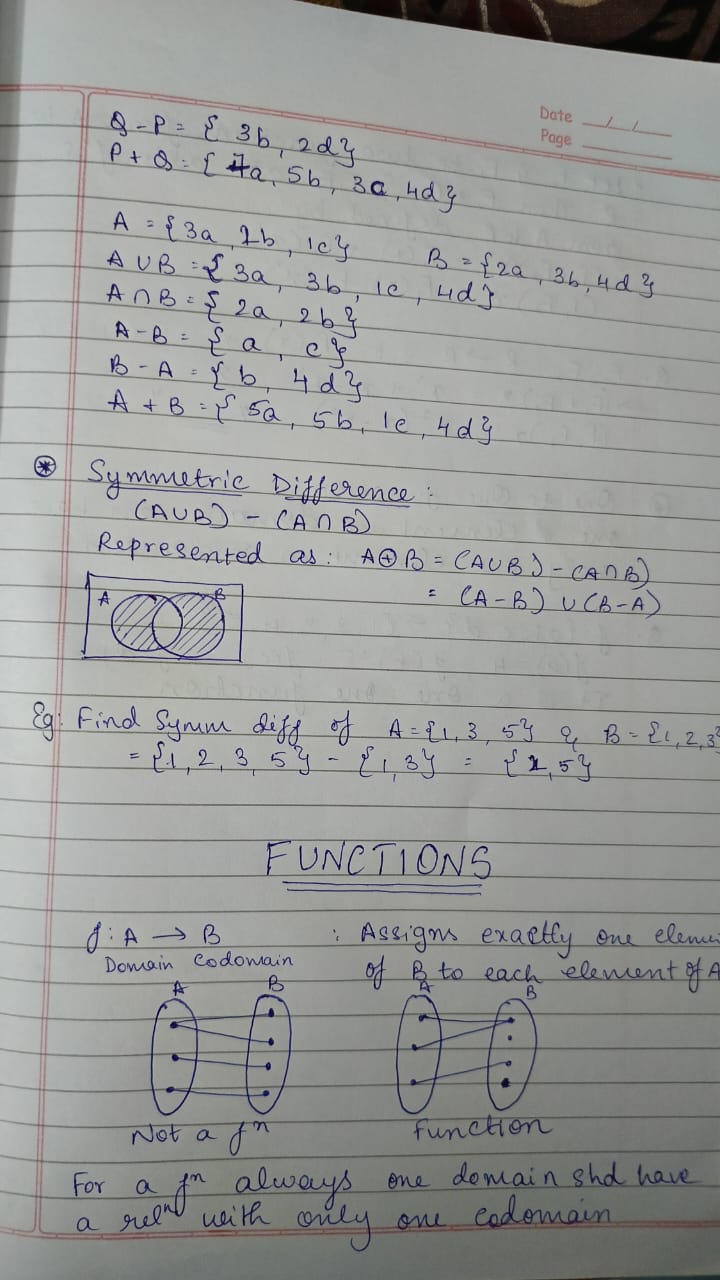 Date __/__/__
Page
Q - P = { 3b, 2d}
P + Q = { 7a, 5b, 3a, 4d}
A = {3a, 2b, 1c}   B = {2a, 3b, 4d}
A ∪ B = { 3a, 3b, 1c, 4d}
A ∩ B = { 2a, 2b}
A - B = { a, c}
B - A = { b, 4d}
A + B = { 5a, 5b, 1c, 4d}
⊛ Symmetric Difference :
(A∪B) - (A∩B)
Represented as : A⊕B = (A∪B) - (A∩B)
= (A-B) ∪ (B-A)
A B
Eg: Find Symm diff of A = {1, 3, 5} & B = {1, 2, 3}
= {1, 2, 3, 5} - {1, 3} = {2, 5}
FUNCTIONS
f : A → B : Assigns exactly one elemen
Domain Codomain of B to each element of A
A B A B
Not a fⁿ function
For a fⁿ always one domain shd have
a relⁿ with only one codomain